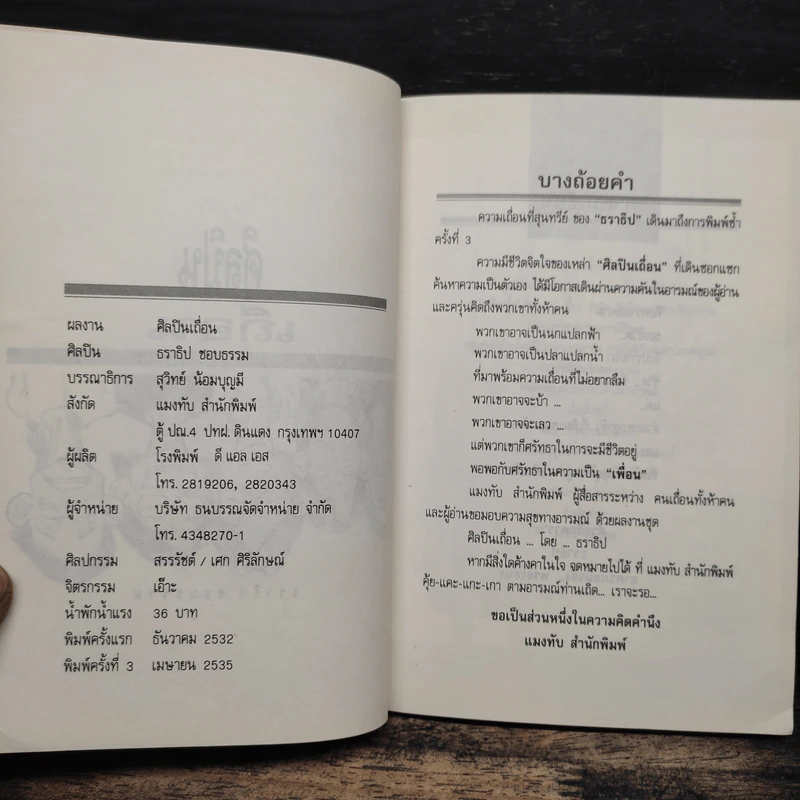 ผลงาน ศิลปินเถื่อน
ศิลปิน ธราธิป ชอบธรรม
บรรณาธิการ สุวิทย์ น้อมบุญมี
สังกัด แมงทับ สำนักพิมพ์
ตู้ ปณ.4 ปทฝ.ดินแดง กรุงเทพฯ 10407
ผู้ผลิต โรงพิมพ์ ดี แอล เอส
โทร. 2819206, 2820343
ผู้จำหน่าย บริษัท ธนบรรณจัดจำหน่าย จำกัด
โทร. 4348270-1
ศิลปกรรม สรรรัชต์ / เศก ศิริลักษณ์
จิตรกรรม เอ๊าะ
น้ำพักน้ำแรง 36 บาท
พิมพ์ครั้งแรก ธันวาคม 2532
พิมพ์ครั้งที่ 3 เมษายน 2535
บางถ้อยคำ
ความเถื่อนที่สุนทรีย์ ของ “ธราธิป” เดินมาถึงการพิมพ์ซ้ำ
ครั้งที่ 3
ความมีชีวิตจิตใจของเหล่า “ศิลปินเถื่อน” ที่เดินซอกแซก
ค้นหาความเป็นตัวเอง ได้มีโอกาสเดินผ่านความคันในอารมณ์ของผู้อ่าน
และครุ่นคิดถึงพวกเขาทั้งห้าคน
พวกเขาอาจเป็นนกแปลกฟ้า
พวกเขาอาจเป็นปลาแปลกน้ำ
ที่มาพร้อมความเถื่อนที่ไม่อยากลืม
พวกเขาอาจจะบ้า ...
พวกเขาอาจจะเลว ...
แต่พวกเขาก็ศรัทธาในการจะมีชีวิตอยู่
พอพอกับศรัทธาในความเป็น “เพื่อน”
แมงทับ สำนักพิมพ์ ผู้สื่อสารระหว่าง คนเถื่อนทั้งห้าคน
และผู้อ่านขอมอบความสุขทางอารมณ์ ด้วยผลงานชุด
ศิลปินเถื่อน ... โดย ... ธราธิป
หากมีสิ่งใดค้างคาในใจ จดหมายไปได้ ที่ แมงทับ สำนักพิมพ์
คุ้ย-แคะ-แกะ-เกา ตามอารมณ์ท่านเถิด... เราจะรอ...
ขอเป็นส่วนหนึ่งในความคิดคำนึง
แมงทับ สำนักพิมพ์